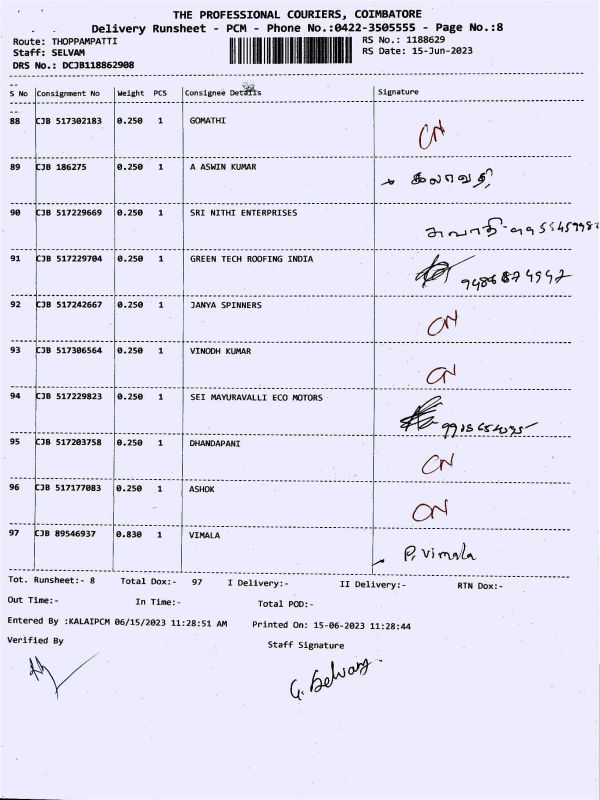 THE PROFESSIONAL COURIERS, COIMBATORE
Delivery Runsheet - PCM - Phone No.:0422-3505555 - Page No.:8
Route: THOPPAMPATTI RS No.: 1188629
Staff: SELVAM RS Date: 15-Jun-2023
DRS No.: DCJB118862908
S No Consignment No Weight PCS Consignee Details Signature
88 CJB 517302183 0.250 1 GOMATHI CN
89 CJB 186275 0.250 1 A ASWIN KUMAR கலாவதி
90 CJB 517229669 0.250 1 SRI NITHI ENTERPRISES
91 CJB 517229704 0.250 1 GREEN TECH ROOFING INDIA
92 CJB 517242667 0.250 1 JANYA SPINNERS CN
93 CJB 517306564 0.250 1 VINODH KUMAR CN
94 CJB 517229823 0.250 1 SEI MAYURAVALLI ECO MOTORS
95 CJB 517203758 0.250 1 DHANDAPANI CN
96 CJB 517177083 0.250 1 ASHOK CN
97 CJB 89546937 0.830 1 VIMALA P. Vimala
Tot. Runsheet:- 8 Total Dox:- 97 I Delivery:- II Delivery:- RTN Dox:-
Out Time:- In Time:- Total POD:-
Entered By :KALAIPCM 06/15/2023 11:28:51 AM Printed On: 15-06-2023 11:28:44
Verified By Staff Signature
G. Selvam